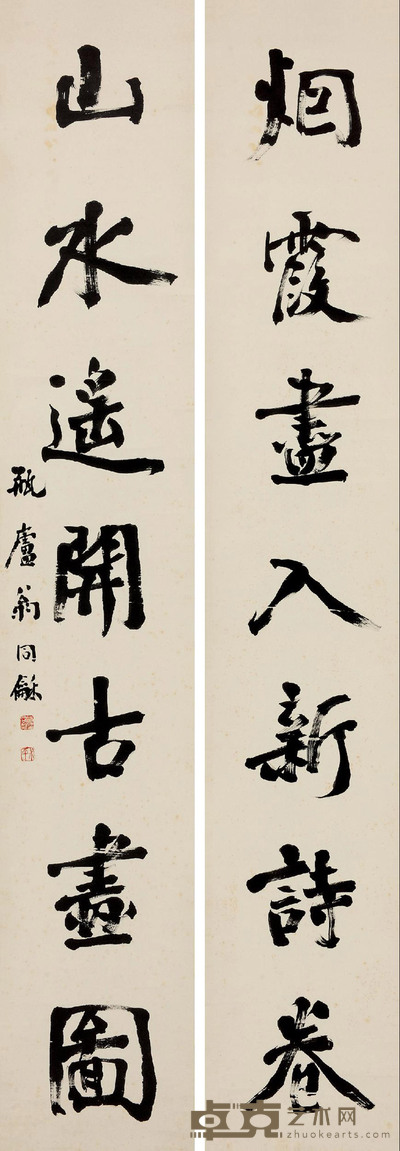 烟霞盡入新詩卷
山水遥開古畫圖
瓶廬翁同龢
卓克艺术网
zhuokearts.com